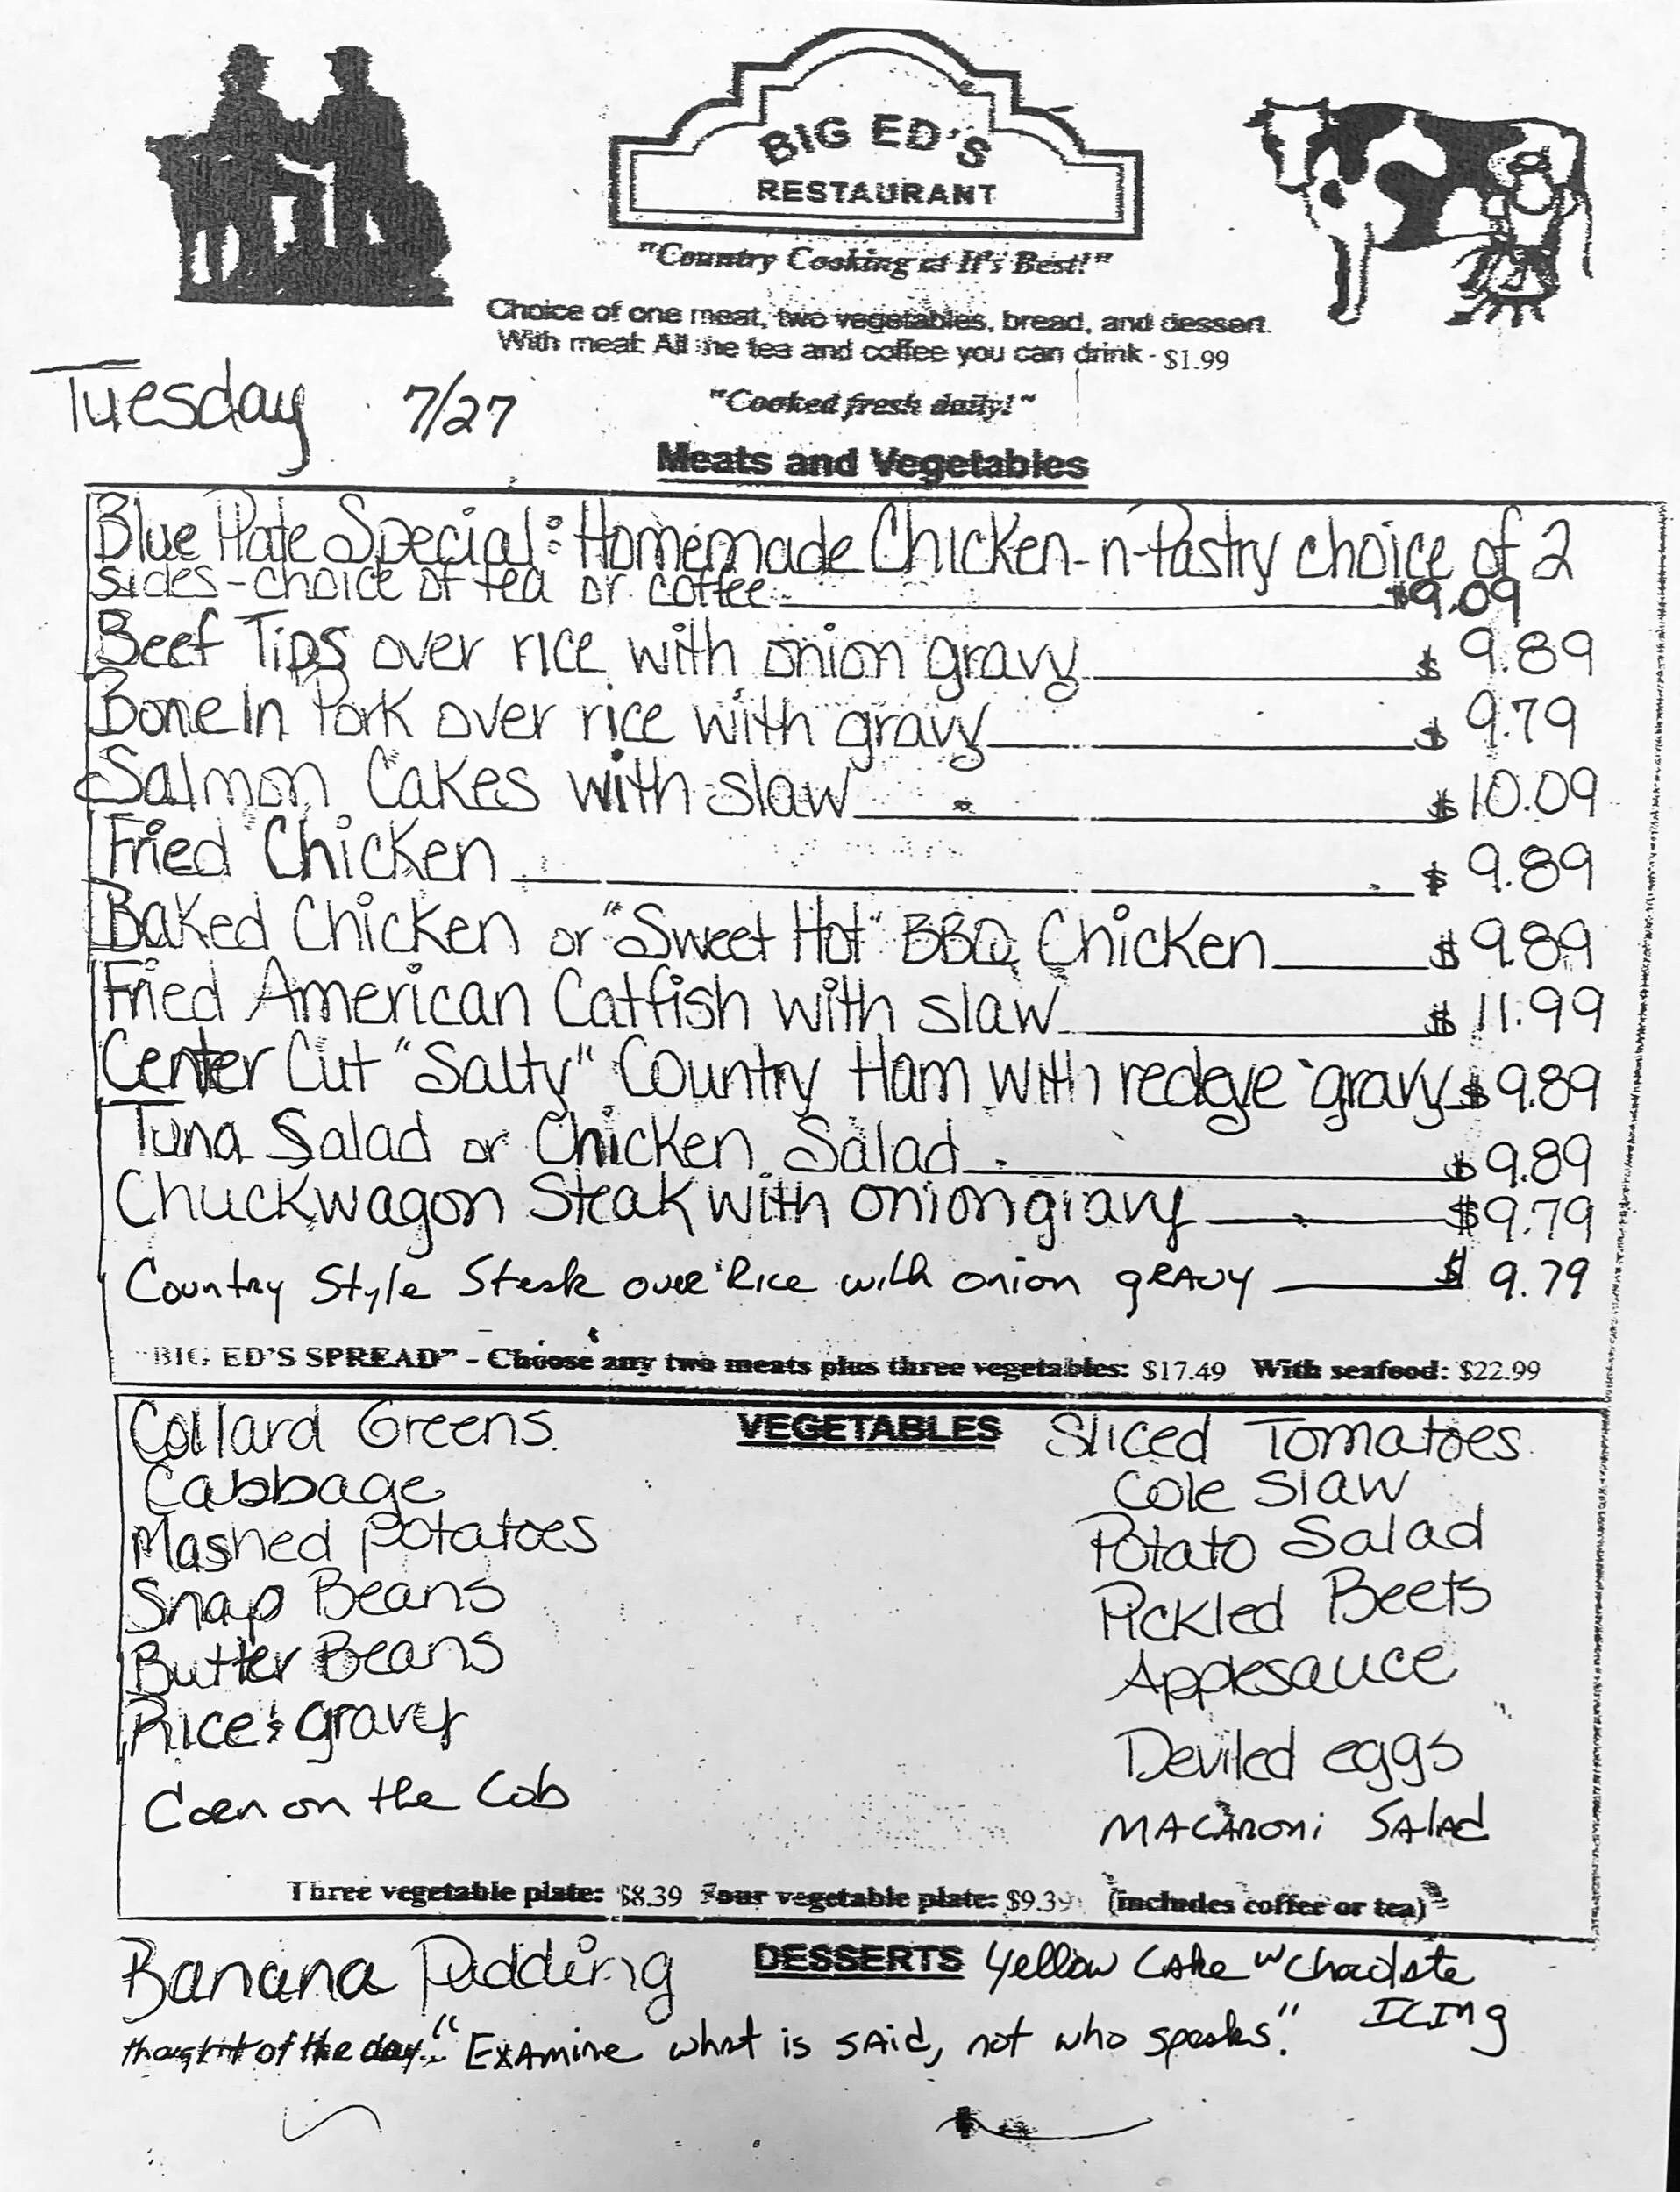 BIG ED'S
RESTAURANT
"Country Cooking at It's Best!"
Choice of one meat, two vegetables, bread, and dessert.
With meal: All the tea and coffee you can drink - $1.99
Tuesday 7/27
"Cooked fresh daily!"
Meats and Vegetables
Blue Plate Special: Homemade Chicken-n-Pastry choice of 2
sides - choice of tea or coffee $9.09
Beef Tips over rice with onion gravy $ 9.89
Bone In Pork over rice with gravy $ 9.79
Salmon Cakes with slaw $ 10.09
Fried Chicken $ 9.89
Baked Chicken or "Sweet Hot" BBQ Chicken $ 9.89
Fried American Catfish with slaw $ 11.99
Center Cut "Salty" Country Ham with redeye gravy $ 9.89
Tuna Salad or Chicken Salad $ 9.89
Chuckwagon Steak with onion gravy $9.79
Country Style Steak over Rice with onion gravy $ 9.79
"BIG ED'S SPREAD" - Choose any two meats plus three vegetables: $17.49 With seafood: $22.99
VEGETABLES
Collard Greens
Cabbage
Mashed potatoes
Snap Beans
Butter Beans
Rice & gravy
Corn on the Cob
Sliced Tomatoes
Cole Slaw
Potato Salad
Pickled Beets
Applesauce
Deviled eggs
MACARONi SALAd
Three vegetable plate: $8.39 Four vegetable plate: $9.39 (includes coffee or tea)
DESSERTS
Banana Pudding
Yellow CAke w Choclate
ICINg
thought of the day: "EXAmine what is SAid, not who speaks."